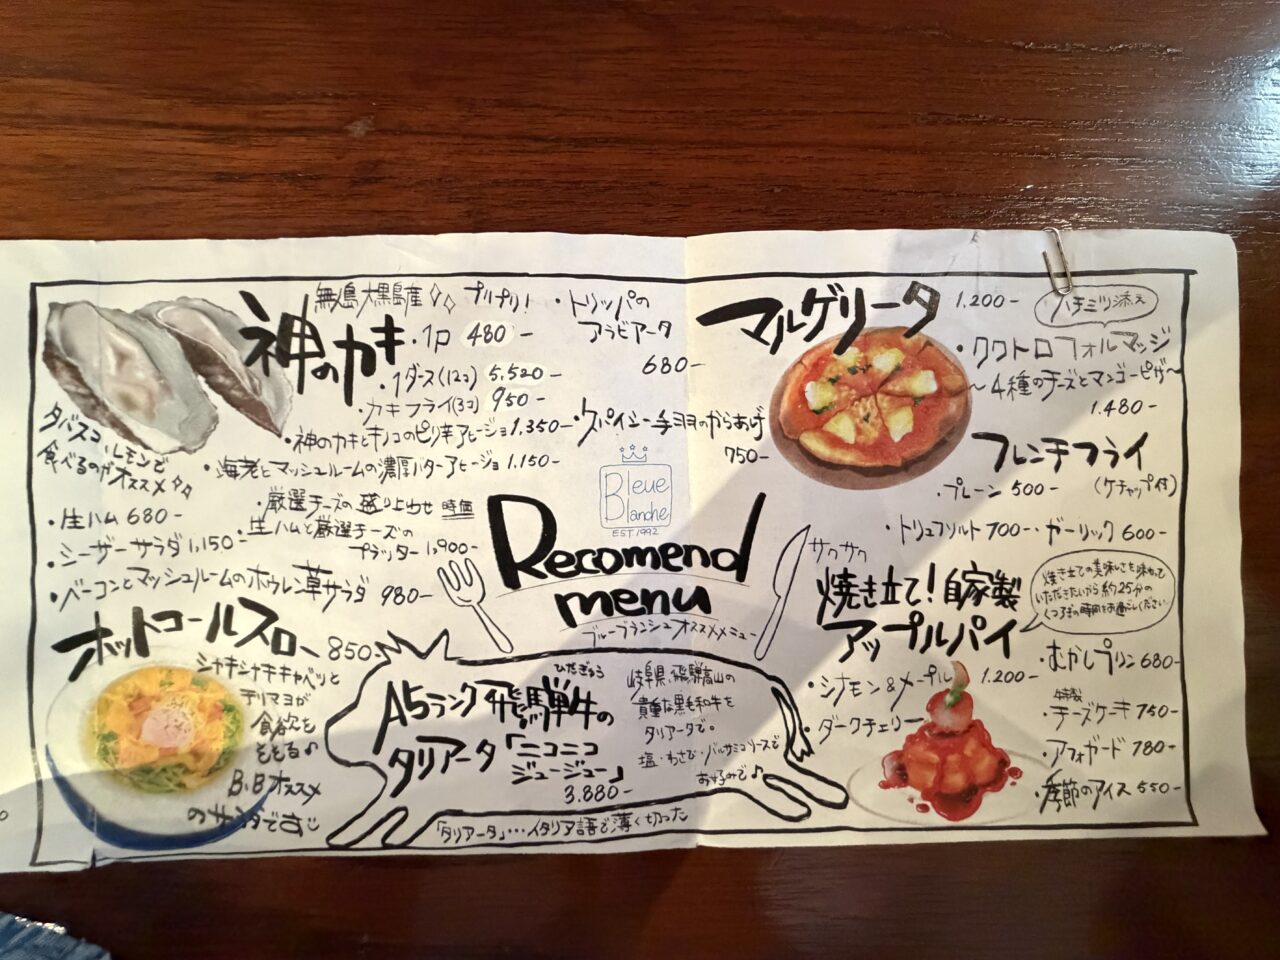 無人島大黒島産 プリプリ!
神のカキ
・1P 480-
・1ダース(12コ) 5,520-
・カキフライ(3コ) 950-
・神のカキとキノコのピリ辛アヒージョ 1,350-
・海老とマッシュルームの濃厚バターアヒージョ 1,150-
タバスコ、レモンで
食べるのがオススメ
・厳選チーズの盛り合わせ 時価
・生ハム 680-
・生ハムと厳選チーズの
プラッター 1,900-
・シーザーサラダ 1,150-
・ベーコンとマッシュルームのホウレン草サラダ 980-
・トリッパの
アラビアータ
680-
・スパイシー手ヨヨのからあげ
750-
Bleue
Blanche
EST 1992
Recomend
menu
ブルーブランシュオススメメニュー
マルゲリータ 1,200-
ハチミツ添え
・クワトロフォルマッジ
〜4種のチーズとマンゴーピザ〜
1,480-
フレンチフライ
(ケチャップ付)
・プレーン 500-
・トリュフソルト 700-
・ガーリック 600-
サクサク
焼き立て!自家製
アップルパイ
1,200-
焼き立ての美味しさを味わって
いただきたいから約25分の
くつろぎの時間をお過ごしください
・シナモン&メープル
・ダークチェリー
・むかしプリン 680-
特製
・チーズケーキ 750-
・アフォガード 780-
・季節のアイス 550-
ホットコールスロー 850-
シャキシャキキャベツと
チリマヨが
食欲を
そそる♪
B.Bオススメ
のサラダです
ひだぎゅう
A5ランク飛騨牛の
タリアータ「ニコニコ
ジュージュー」
3,880-
岐阜県、飛騨高山の
貴重な黒毛和牛を
タリアータで。
塩・わさび・バルサミコソースで
お好みで♪
「タリアータ」…イタリア語で薄く切った